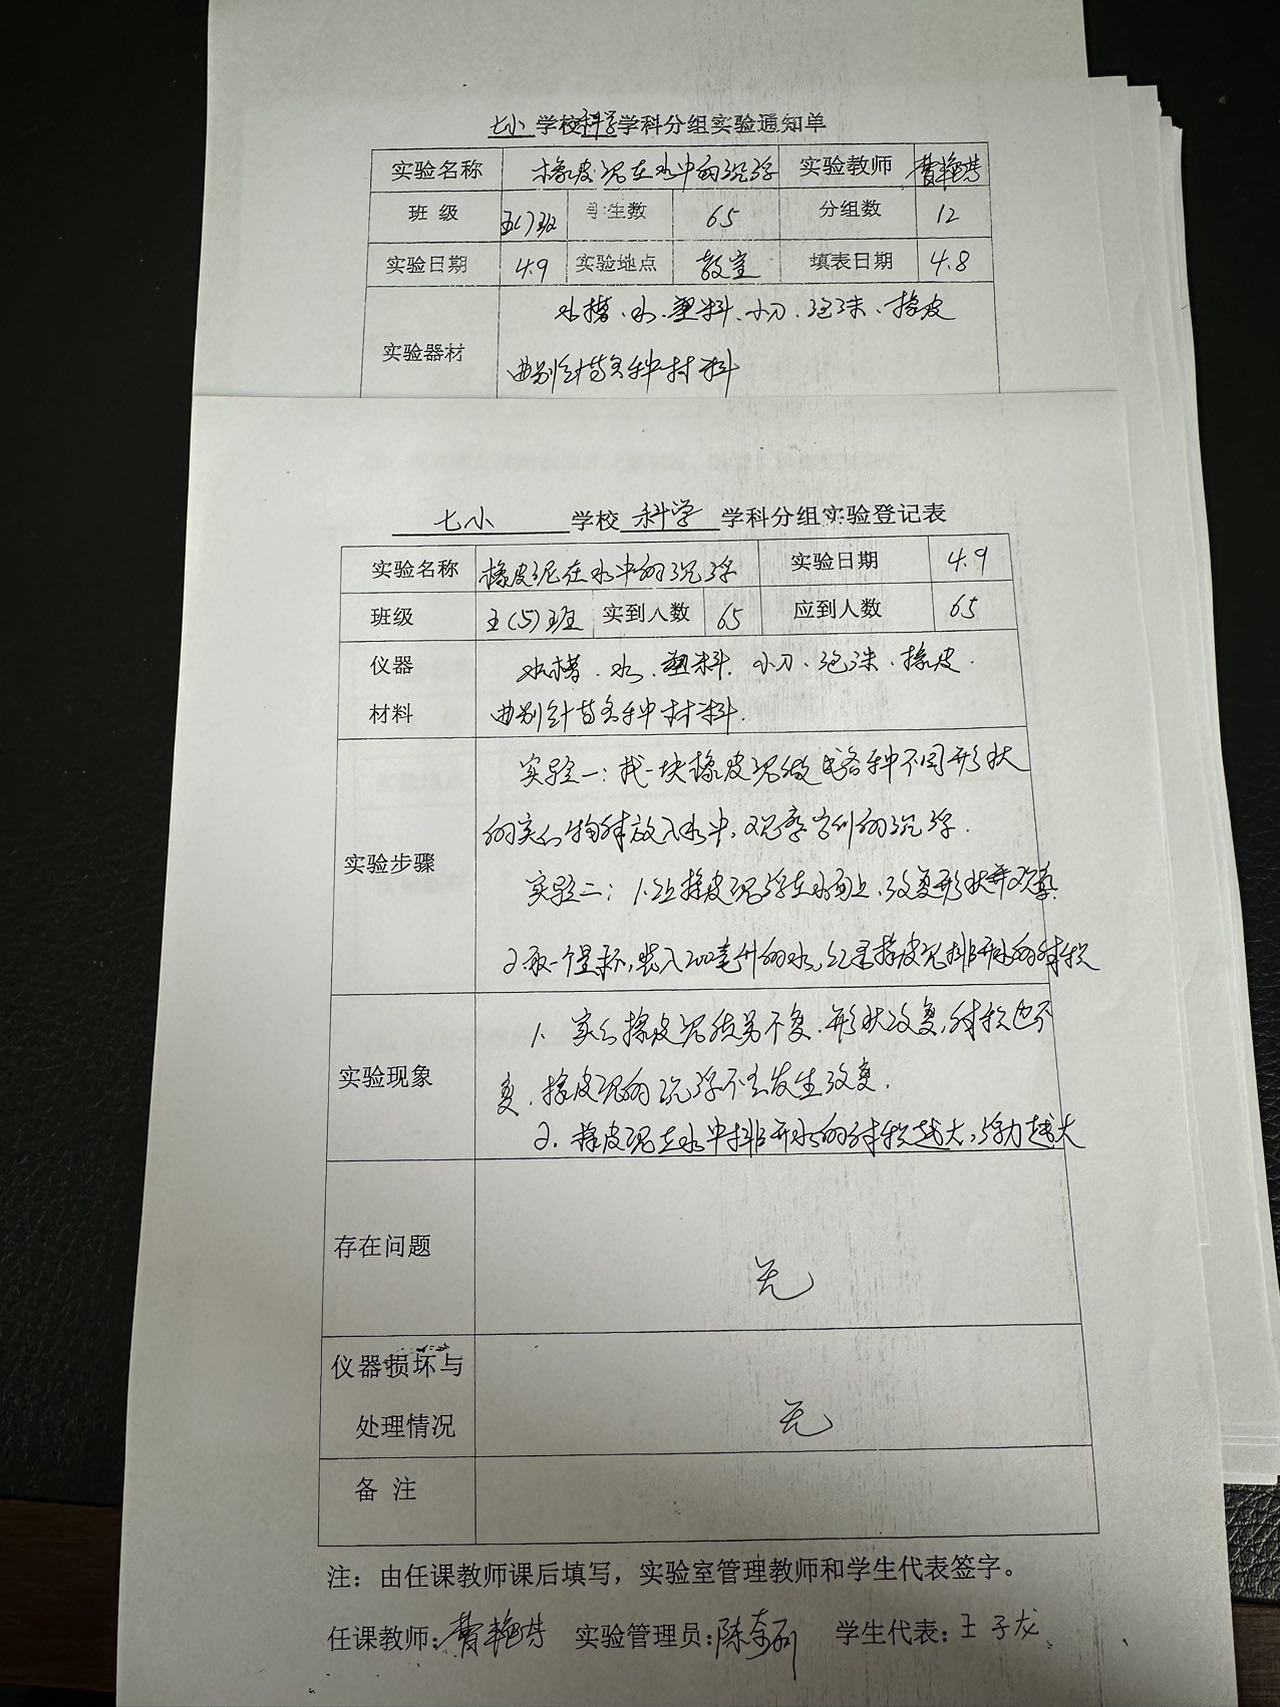 七小 学校 科学 学科分组实验通知单
实验名称 橡皮泥在水中的沉浮 实验教师 曹艳芬
班 级 五( )班 学生数 65 分组数 12
实验日期 4.9 实验地点 教室 填表日期 4.8
水槽、水、塑料、小刀、泡沫、橡皮
实验器材
曲别针等各种材料
七小 学校 科学 学科分组实验登记表
实验名称 橡皮泥在水中的沉浮 实验日期 4.9
班级 五(5)班 实到人数 65 应到人数 65
仪器 水槽、水、塑料、小刀、泡沫、橡皮、
材料 曲别针等各种材料.
实验一:找一块橡皮泥做成各种不同形状
的实心物体放入水中,观察它们的沉浮.
实验步骤
实验二:1.让橡皮泥浮在水面上,改变形状并观察.
2.取一个量杯,装入200毫升的水,记录橡皮泥排开水的体积
1、实心橡皮泥质量不变,形状改变,体积也不
实验现象
变,橡皮泥的沉浮不会发生改变.
2.橡皮泥在水中排开水的体积越大,浮力越大
存在问题
无
仪器损坏与
处理情况 无
备 注
注:由任课教师课后填写,实验室管理教师和学生代表签字。
任课教师: 曹艳芬 实验管理员: 陈 学生代表: 王子龙